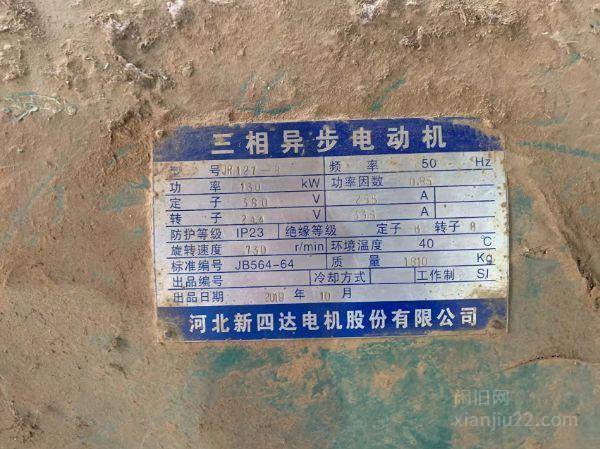 三相异步电动机
型 号 JR127-8 频 率 50 Hz
功 率 130 kW 功率因数 0.85
定 子 380 V A
转 子 244 V A
防护等级 IP23 绝缘等级 定子 转子
旋转速度 730 r/min 环境温度 40 ℃
标准编号 JB564-64 质 量 1810 Kg
出品编号 冷却方式 工作制 SI
出品日期 2019 年 10 月
河北新四达电机股份有限公司
闲旧网
xianjiu22.com